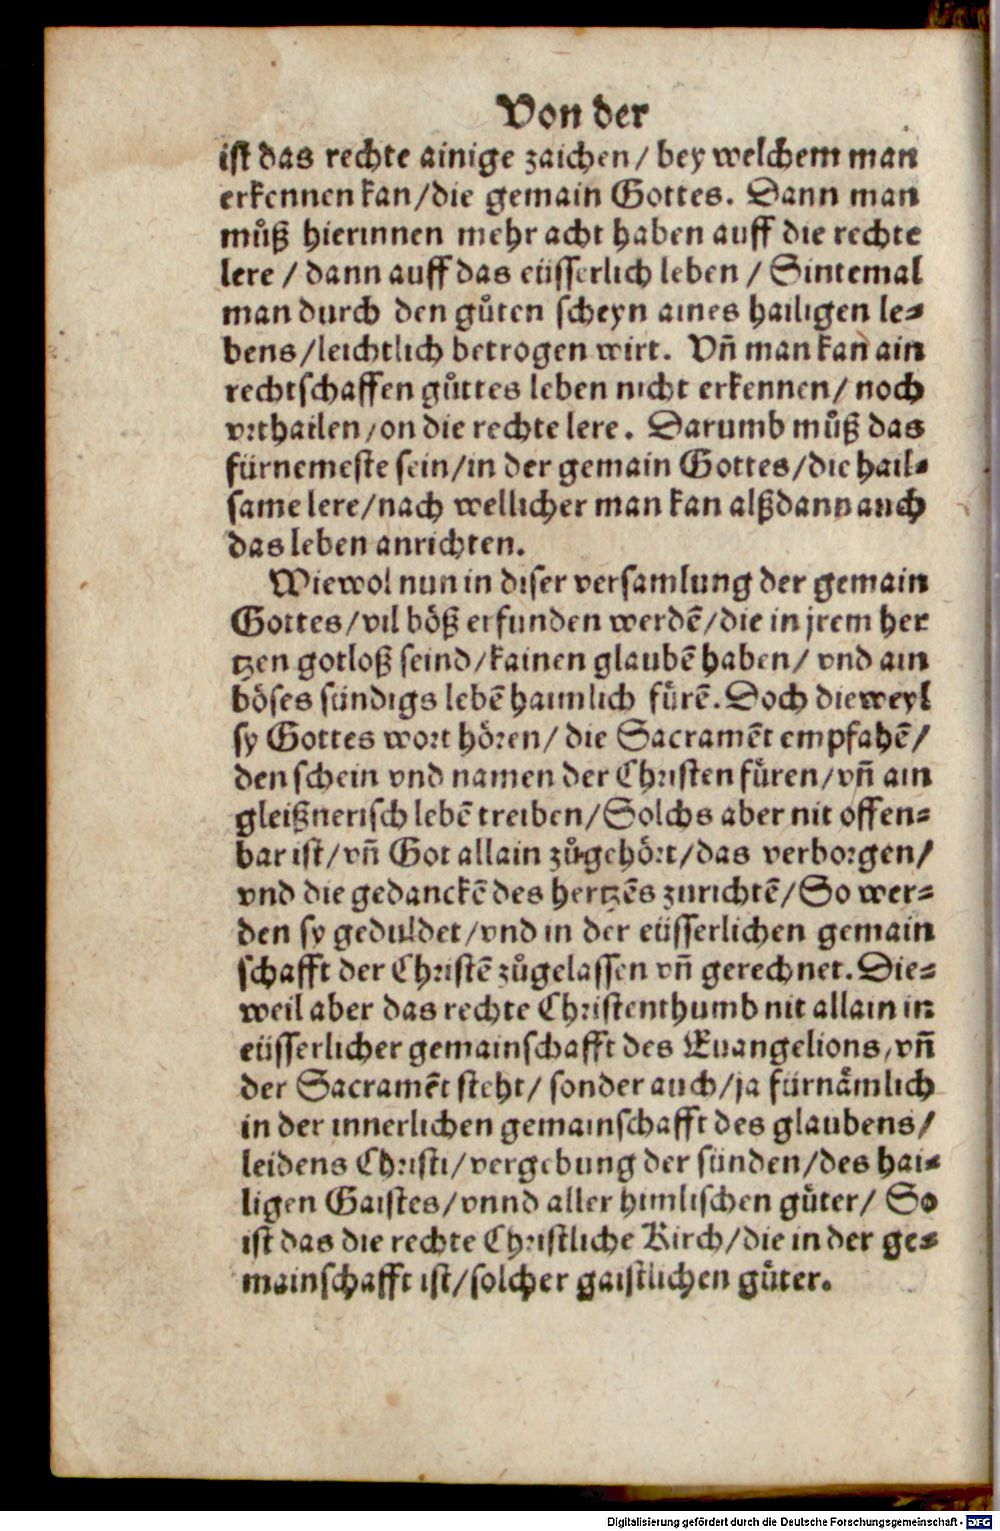 Von der
ist das rechte ainige zaichen / bey welchem man
erkennen kan / die gemain Gottes. Dann man
můß hierinnen mehr acht haben auff die rechte
lere / dann auff das eüsserlich leben / Sintemal
man durch den gůten scheyn aines hailigen le⸗
bens / leichtlich betrogen wirt. Vñ man kan ain
rechtschaffen gůttes leben nicht erkennen / noch
vrthailen / on die rechte lere. Darumb můß das
fürnemeste sein / in der gemain Gottes / die hail⸗
same lere / nach wellicher man kan alßdann auch
das leben anrichten.
Wiewol nun in diser versamlung der gemain
Gottes / vil böß erfunden werdē / die in jrem her
tzen gotloß seind / kainen glaubē haben / vnd ain
böses sündigs lebē haimlich fürē. Doch dieweyl
sy Gottes wort hören / die Sacramēt empfahē /
den schein vnd namen der Christen füren / vñ ain
gleißnerisch lebē treiben / Solchs aber nit offen⸗
bar ist / vñ Got allain zůgehört / das verborgen /
vnd die gedanckē des hertzēs zurichtē / So wer⸗
den sy geduldet / vnd in der eüsserlichen gemain
schafft der Christē zůgelassen vñ gerechnet. Die⸗
weil aber das rechte Christenthumb nit allain in
eüsserlicher gemainschafft des Euangelions, vñ
der Sacramēt steht / sonder auch / ja fürnämlich
in der innerlichen gemainschafft des glaubens /
leidens Christi / vergebung der sünden / des hai⸗
ligen Gaistes / vnnd aller himlischen güter / So
ist das die rechte Christliche Kirch / die in der ge⸗
mainschafft ist / solcher gaistlichen güter.
Digitalisierung gefördert durch die Deutsche Forschungsgemeinschaft - DFG